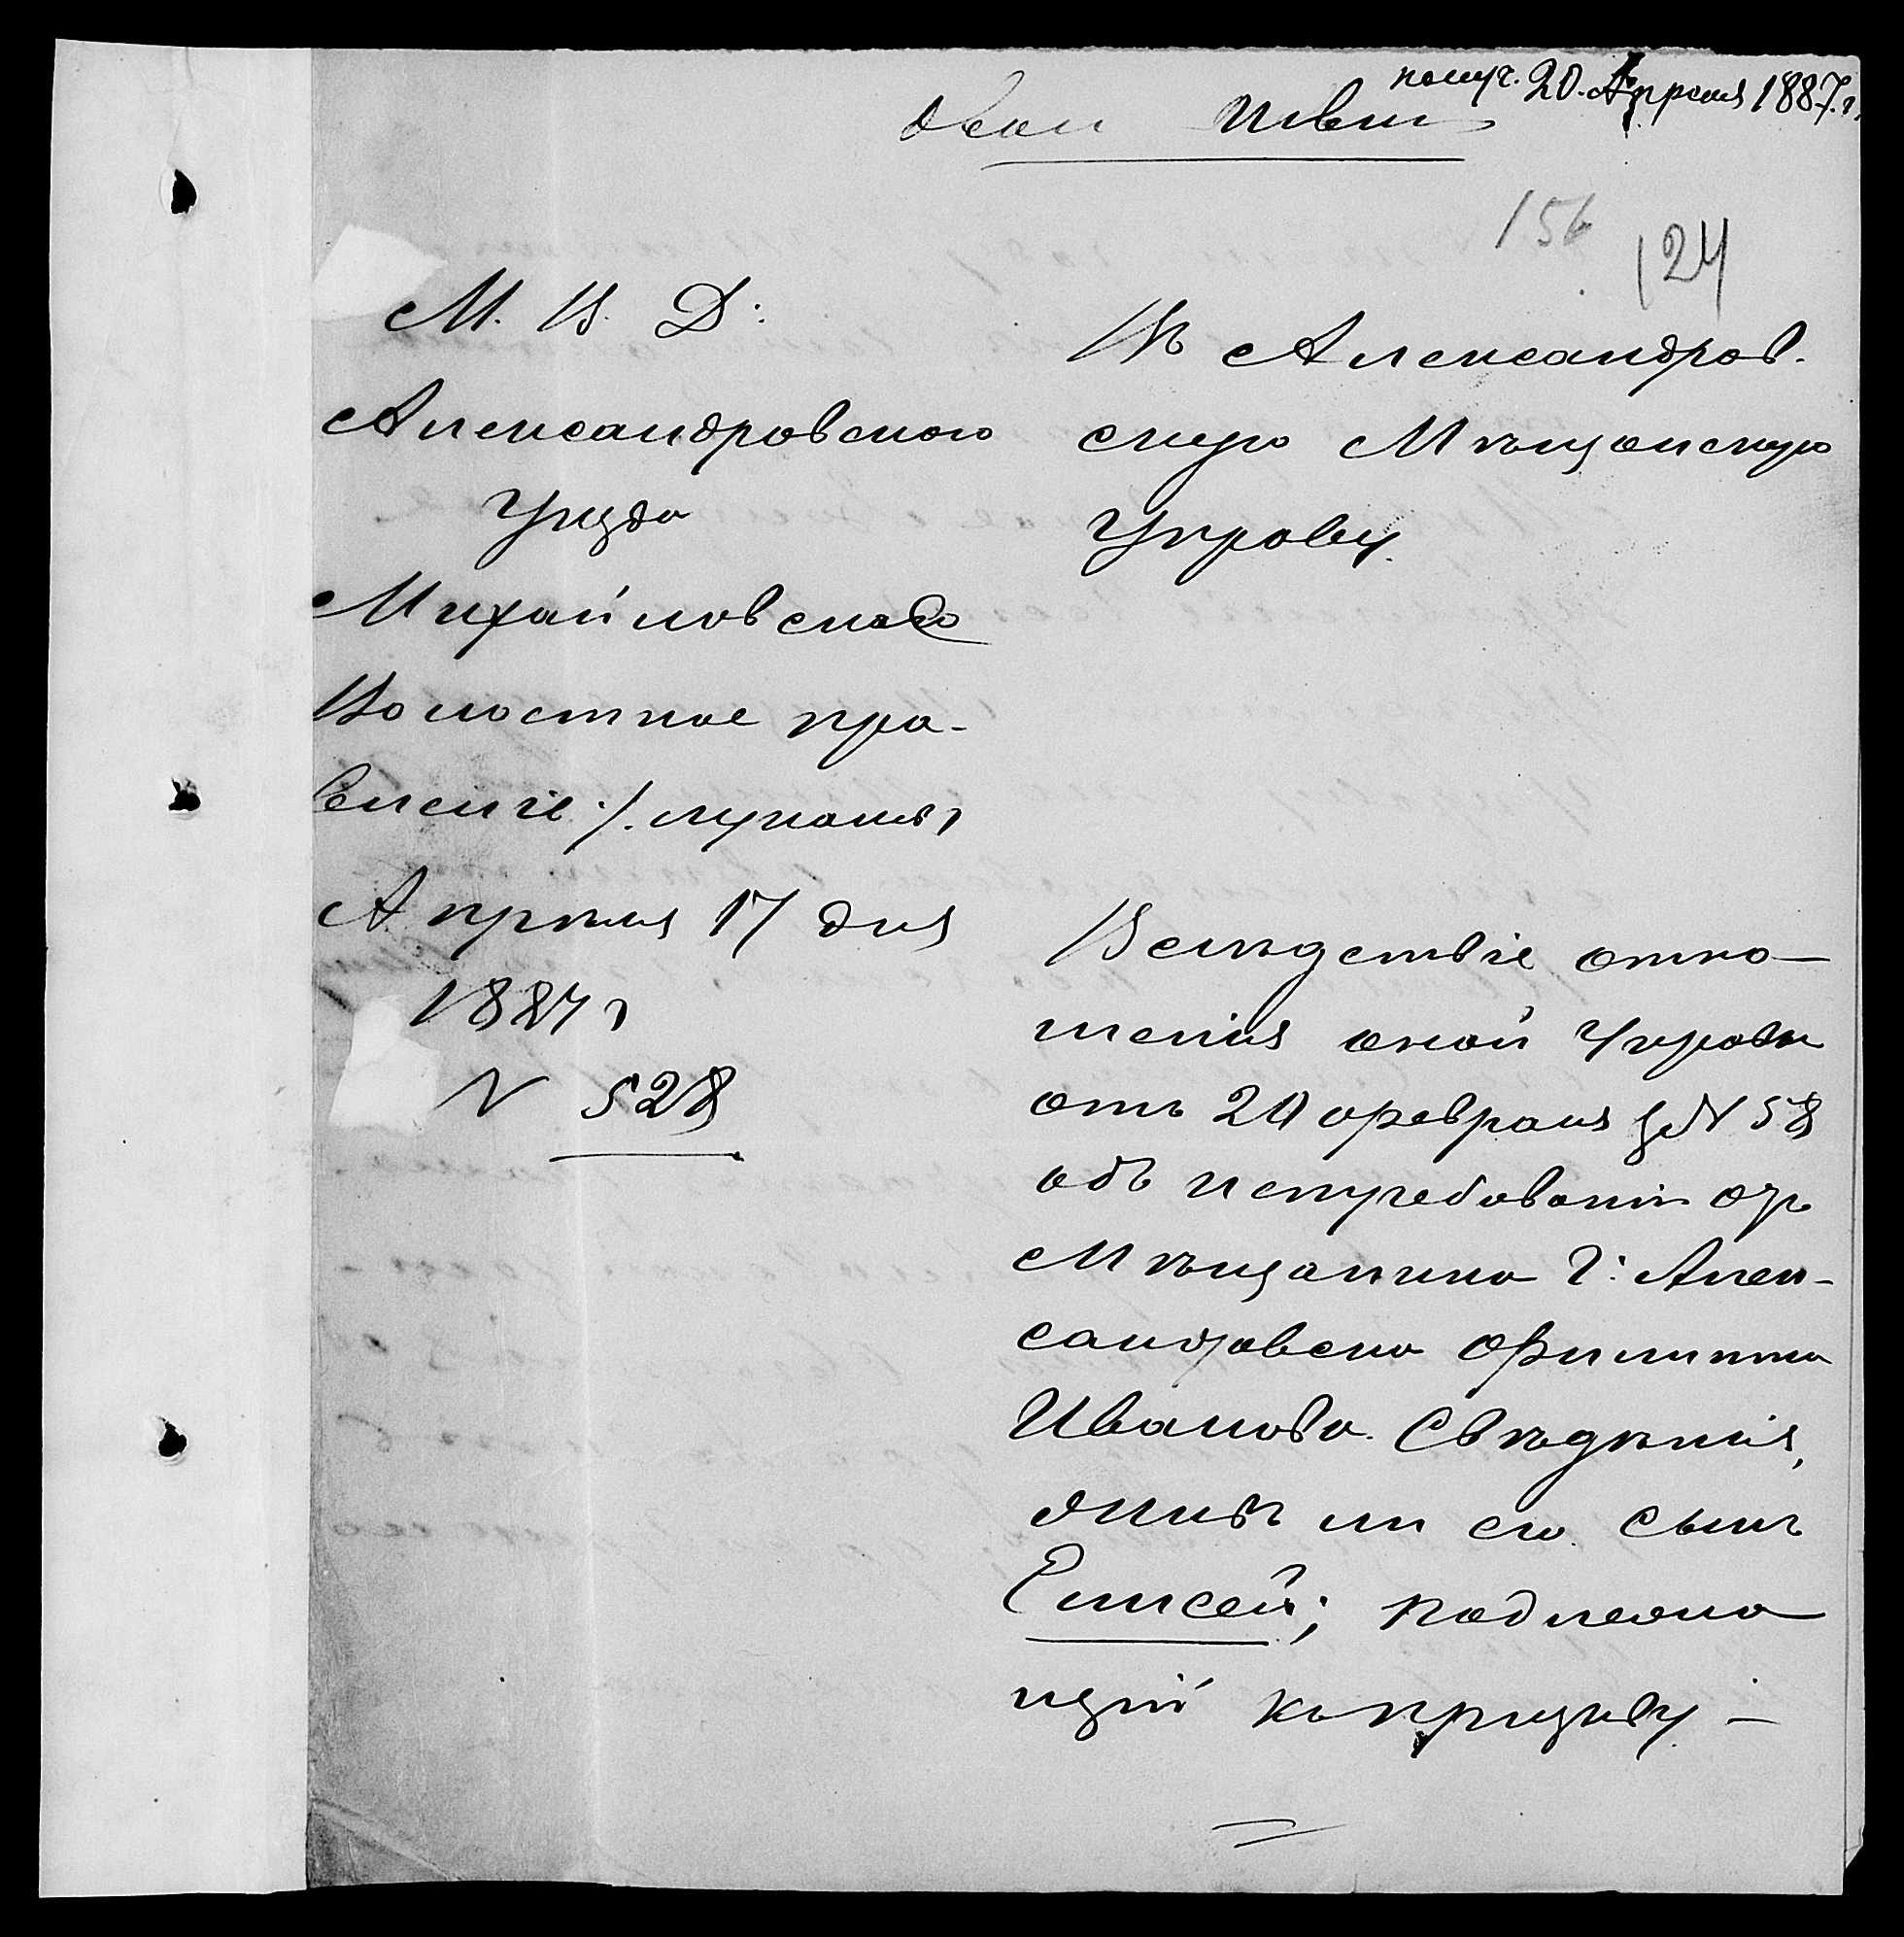 получ. 20. Апреля 1887. г.
156
124
М. В. Д.
Александровского
Уезда
Михайловское
Волостное пра-
вленіе
Апрѣля 17 дня
1887 г
N 528
Въ Александров-
скую Мѣщанскую
Управу.
Вслѣдствіе отно-
шенія оной Управы
отъ 20 февраля за N 58
объ истребованіи отъ
Мѣщанина г. Алек-
сандровска Филиппа
Иванова Свѣдѣнія,
живъ ли его сынъ
Елисей; подлежа
щій къ призыву –